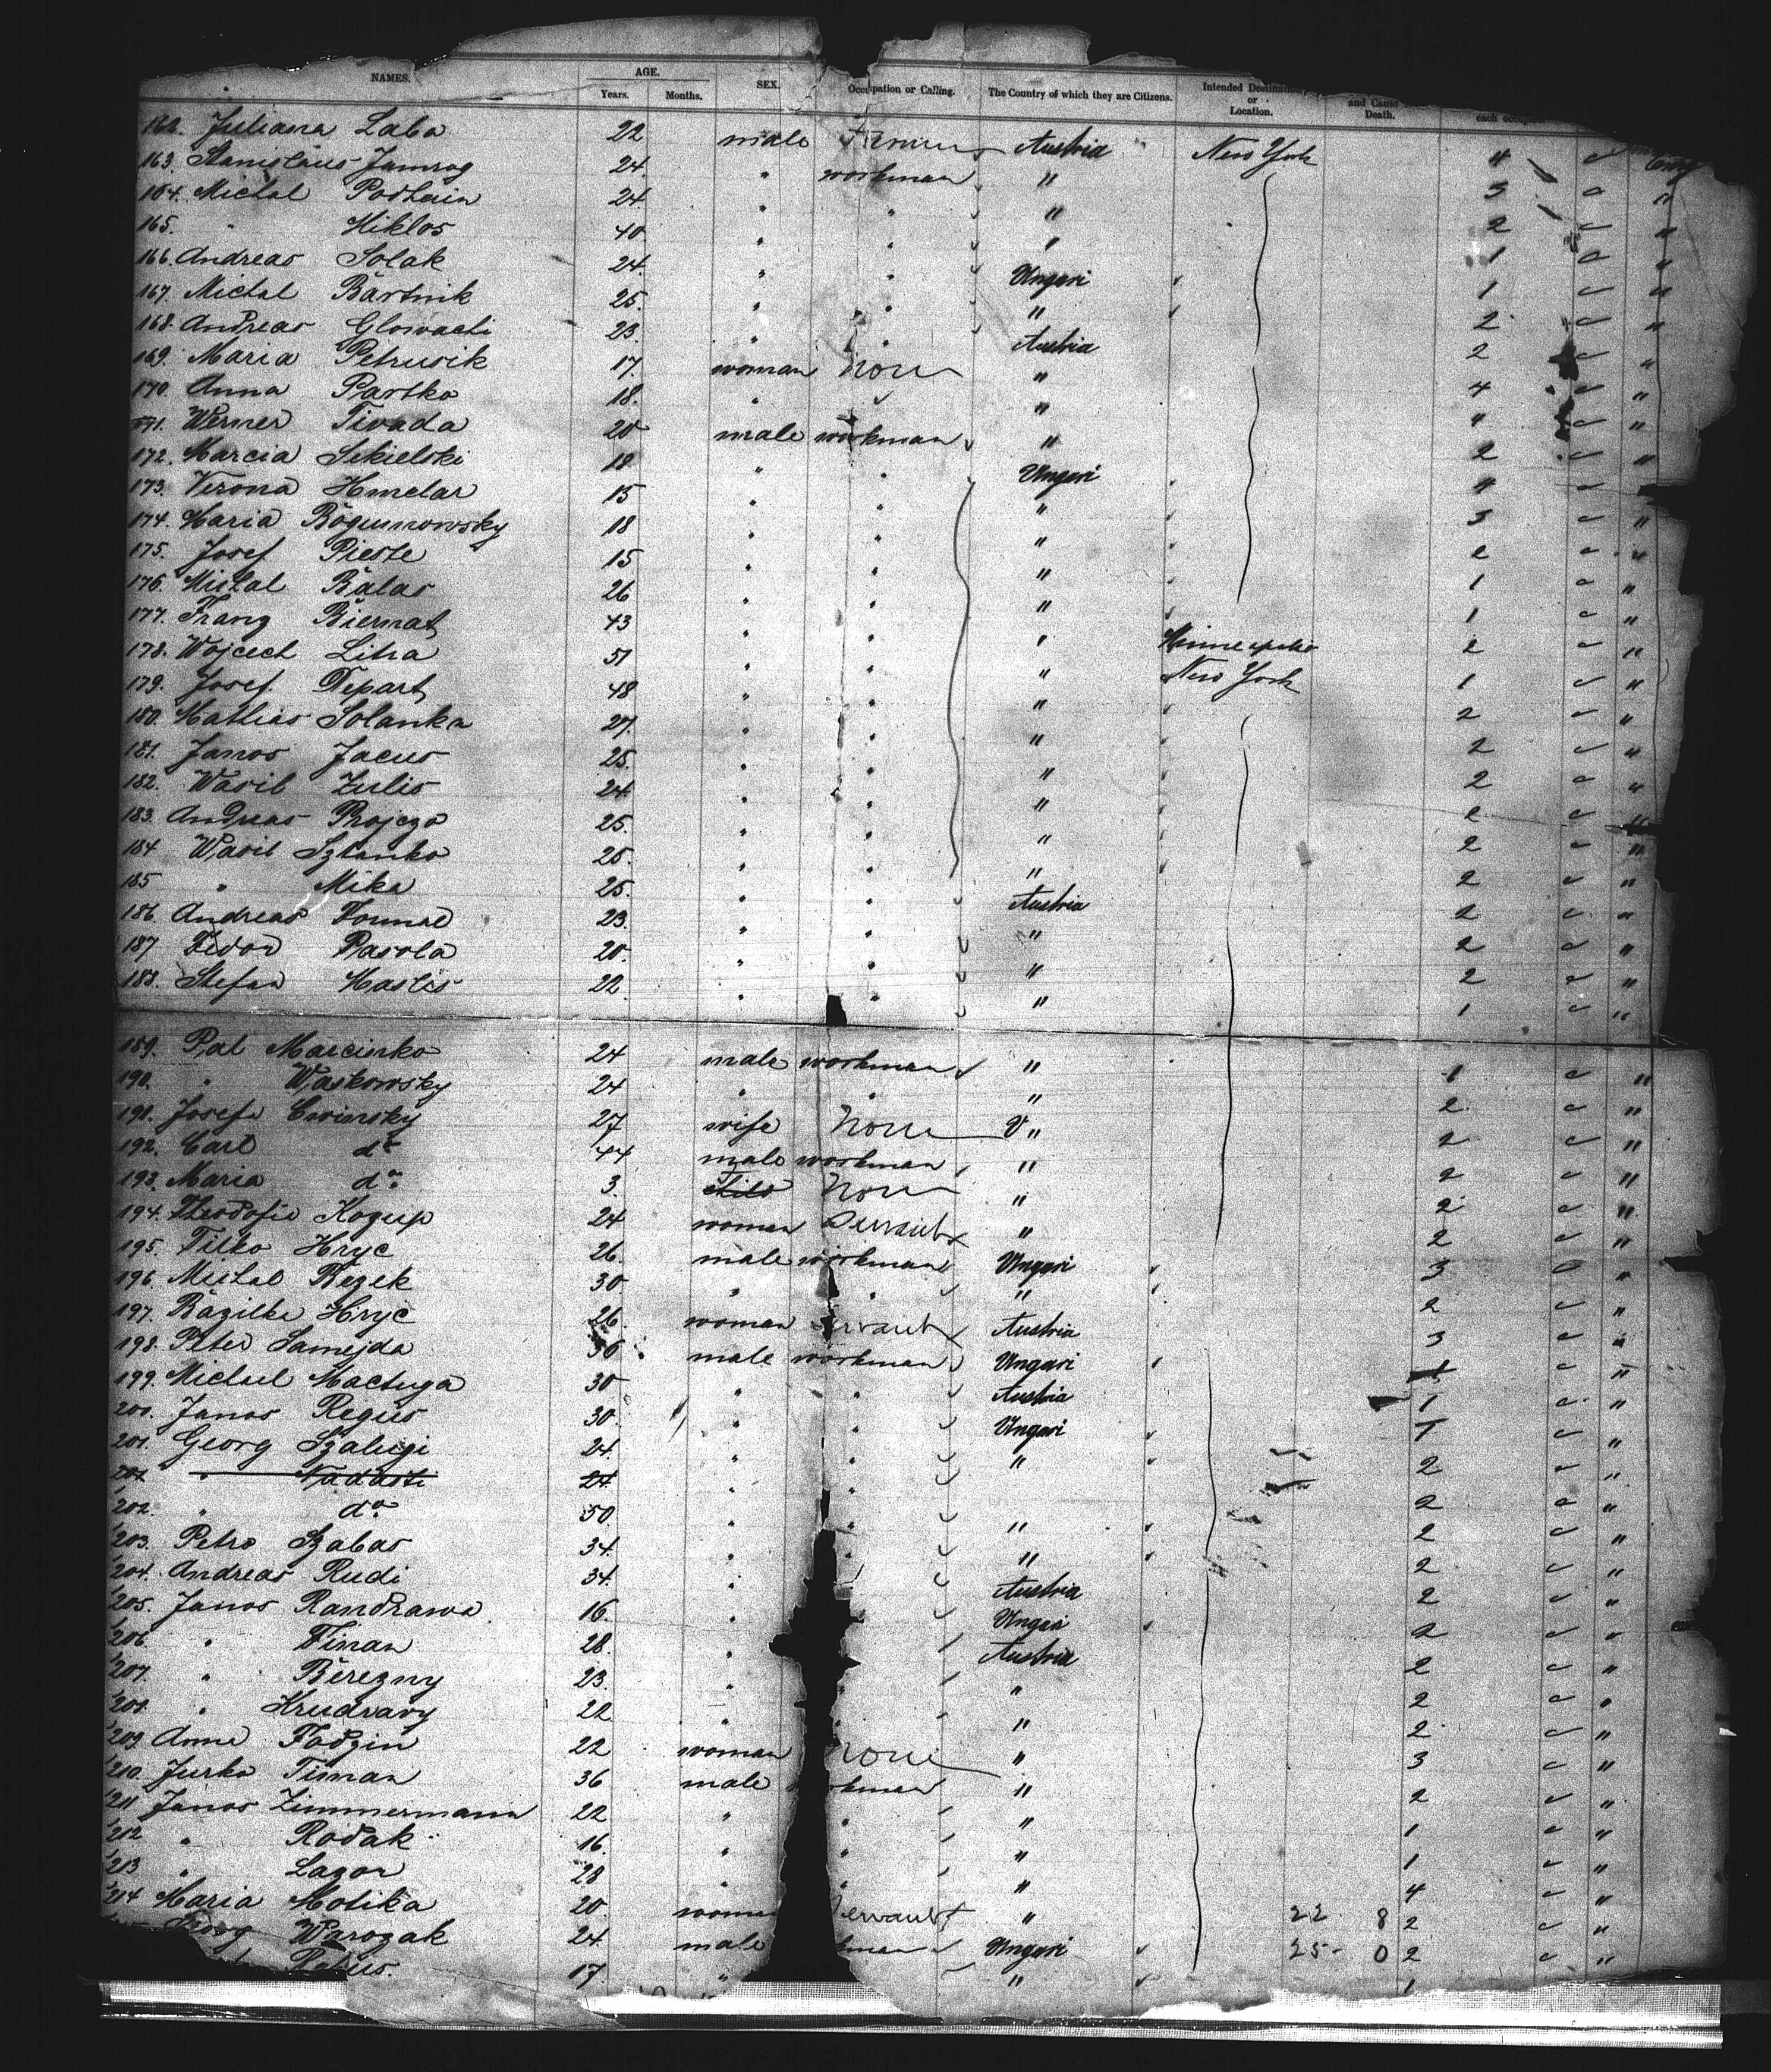 NAMES. AGE. Years. Months. SEX. Occupation or Calling. The Country of which they are Citizens. Intended Destination or Location. and Cause Death. each
162. Juliana Laba 22 male Austria New York 4
163. Stanislaus Jamrog 24. " workman " 3 "
164. Michal Podhain 24. " " " 2 "
165. " Miklos 40. " " " 1 "
166. Andreas Solak 24. " " Ungari 1 "
167. Michal Bartnik 25. " " " 2 "
168. Andreas Glowacki 23. " " Austria 2 "
169. Maria Petrusik 17. woman None " 4 "
170. Anna Partko 18. " " 4 "
171. Werner Tivada 20 male workman " 2 "
172. Marcia Sekielski 18 " " Ungari 4 "
173. Verona Hmelar 15 " " " 3 "
174. Maria Bogumowsky 18 " " " 2 "
175. Josef Pieste 15 " " " 1 "
176. Michal Balas 26 " " " 1 "
177. Franz Biernat 43 " " " Minneapolis 2 "
178. Wojcech Litra 51 " " " New York 1 "
179. Josef Depart 48 " " " 2 "
180. Mathias Solanka 27. " " " 2 "
181. Janos Jacus 25. " " " 2 "
182. Wasil Zulis 24. " " " 2 "
183. Andreas Projcza 25. " " " 2 "
184 Wasil Szlanko 25. " " " 2 "
185 " Mika 25. " " Austria 2 "
186. Andreas Fournal 23. " " " 2 "
187 Fedor Pasola 20. " " " 2 "
188. Stefan Haslis 22 " " " 1 "
189. Pal Marcinko 24 male workman " 1 "
190. " Waskowsky 24 " " " 2. "
191. Josefa Cwinsky 27 wife None " 2 "
192. Carl do 44 male workman " 2 "
193. Maria do. 3. child None " 2 "
194. Theodosie Kozup 24 woman Servant " 2 "
195. Tilko Hryc 26. male workman Ungari 3 "
196 Michal Rezek 30 " " " 2 "
197. Bazilka Hryc 26. woman Servant Austria 3 "
198. Peter Samejda 36 male workman Ungari 1 "
199. Michael Mactuga 30 " " Austria 1 "
200. Janos Regus 30. " " Ungari 1 "
201. Georg Szaligi 24. " " " 2 "
202 " Nadasti 24. " " 2 "
202. " do 50. " " " 2 "
203. Petro Szabas 34. " " " 2 "
204. Andreas Rudi 34. " Austria 2 "
205. Janos Randrawa 16. " Ungari 2 "
206. " Timan 28. " Austria 2 "
207. " Berezny 23. " " 2 "
208. " Hrudravy 22 " " 2 "
209 Anna Fadzin 22 woman None " 3 "
210. Jurko Timan 36 male workman " 2 "
211 Janos Zimmermann 22 " " " 1 "
212 " Rodak 16. " " " 1 "
213 " Lazor 28 " " " 4 "
214 Maria Motika 20. woman Servant " 22 8 2 "
Warozak 24. male workman Ungari 25- 0 2 "
Petrus. 17. " " 1